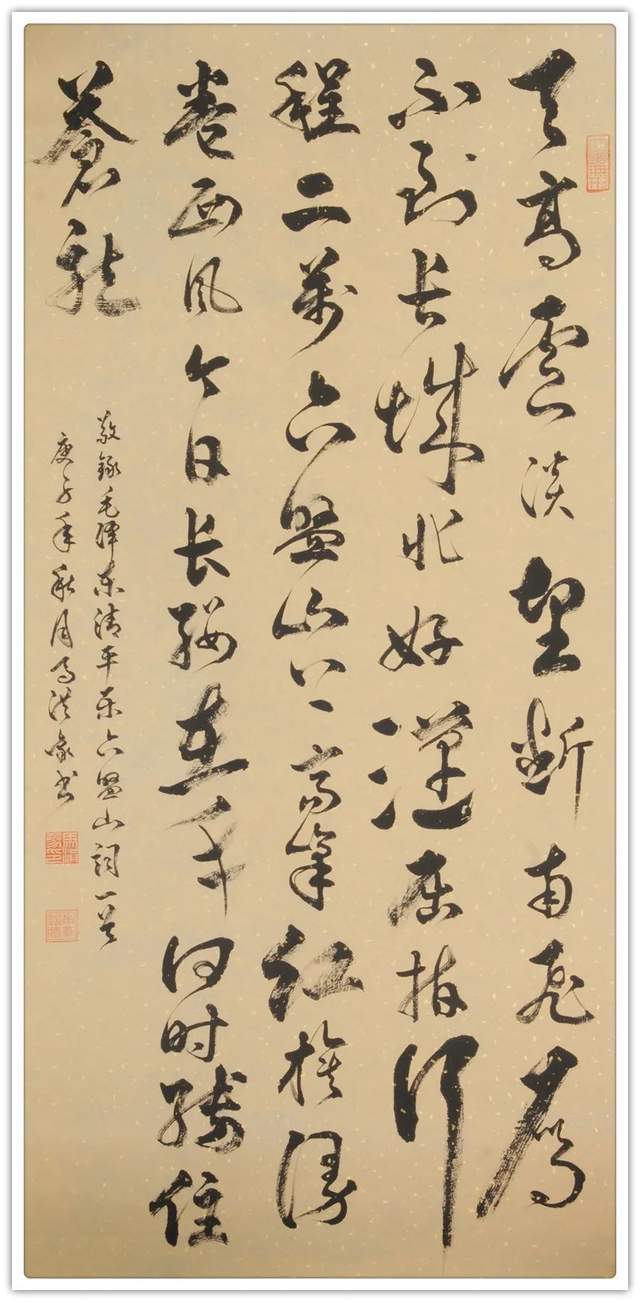 天高雲淡望断南飞雁
不到长城非好漢屈指行
程二萬六盘山上高峰红旗漫
卷西风今日长缨在手何时缚住
蒼龙
敬録毛泽东清平乐六盘山词一首
庚子年秋月马洪书